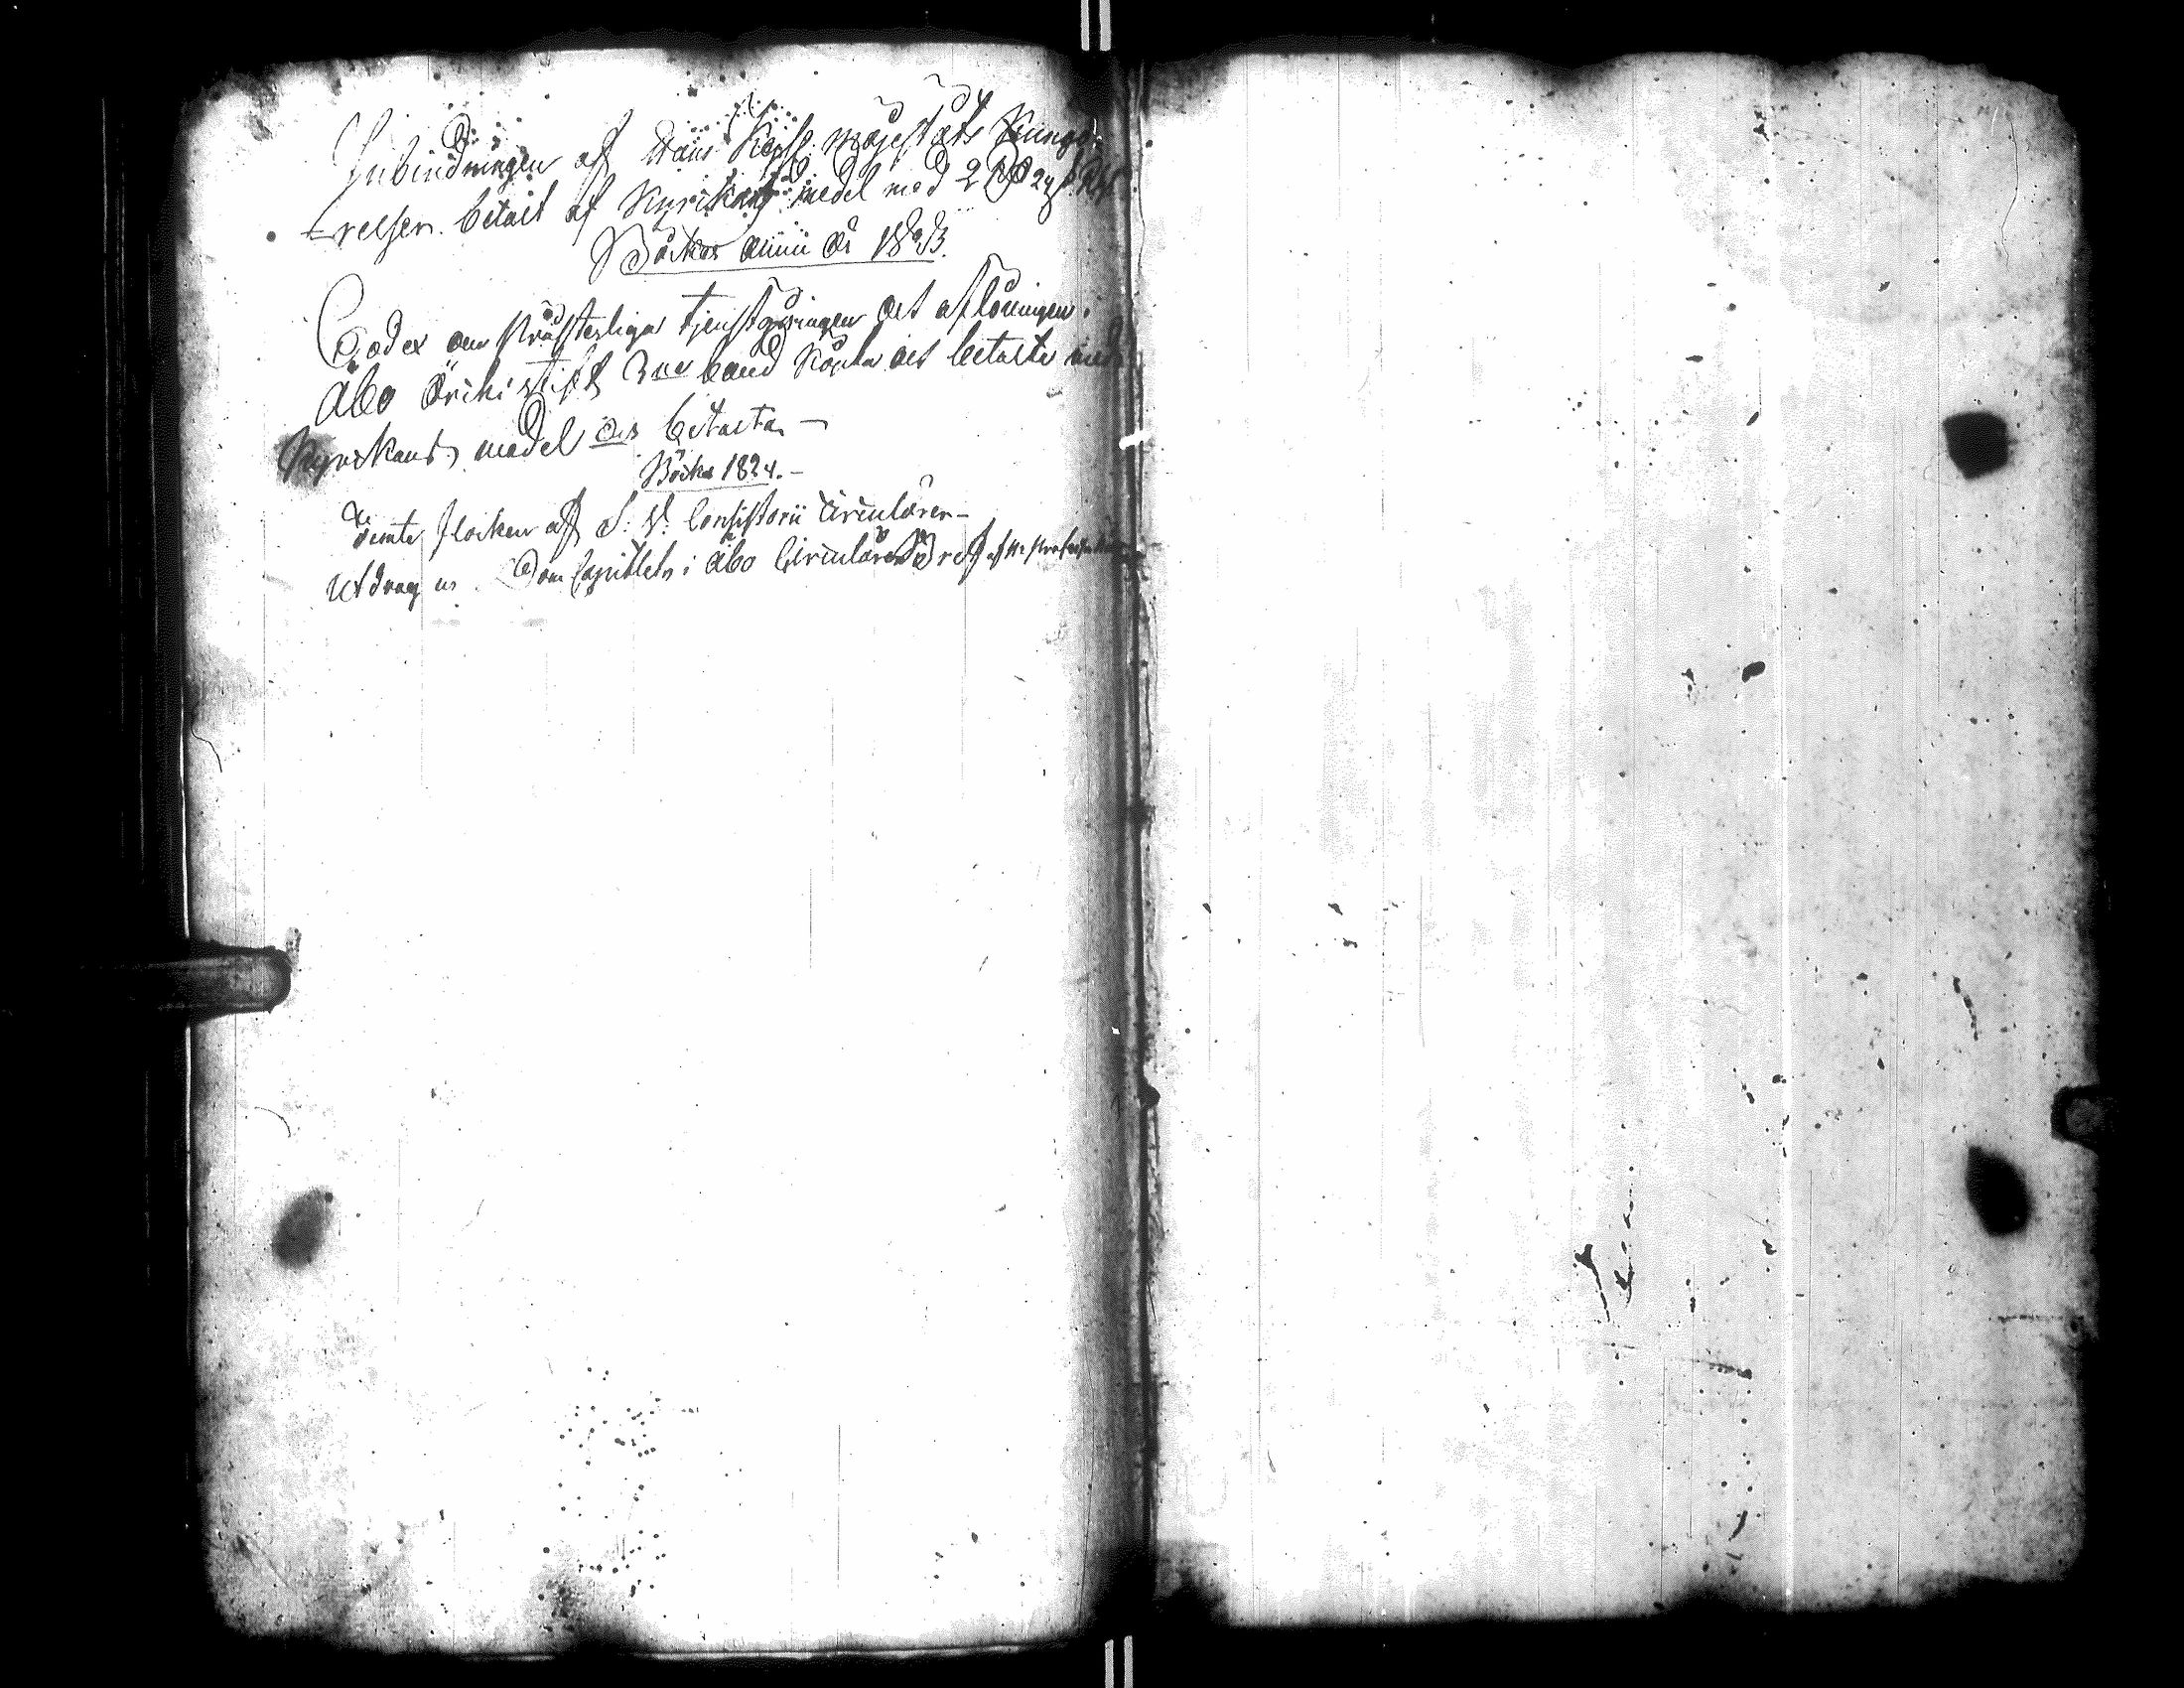 Inbindningen af Hans Kejsl. Majestäts Kungö-
relser. betalt af Kyrkans medel med 2 24
Böcker 18
Codex om Prästerliga tjenstgöringen och aflöningen i
Åbo Ärkistift band Köpta och betalte med
Kyrkans medel betalta —
Böcker 1824. —
femte flocken af S. V. Consistorii Circulärer —
Utdrag ur Dom Capitlets i Åbo Circulär Bref af